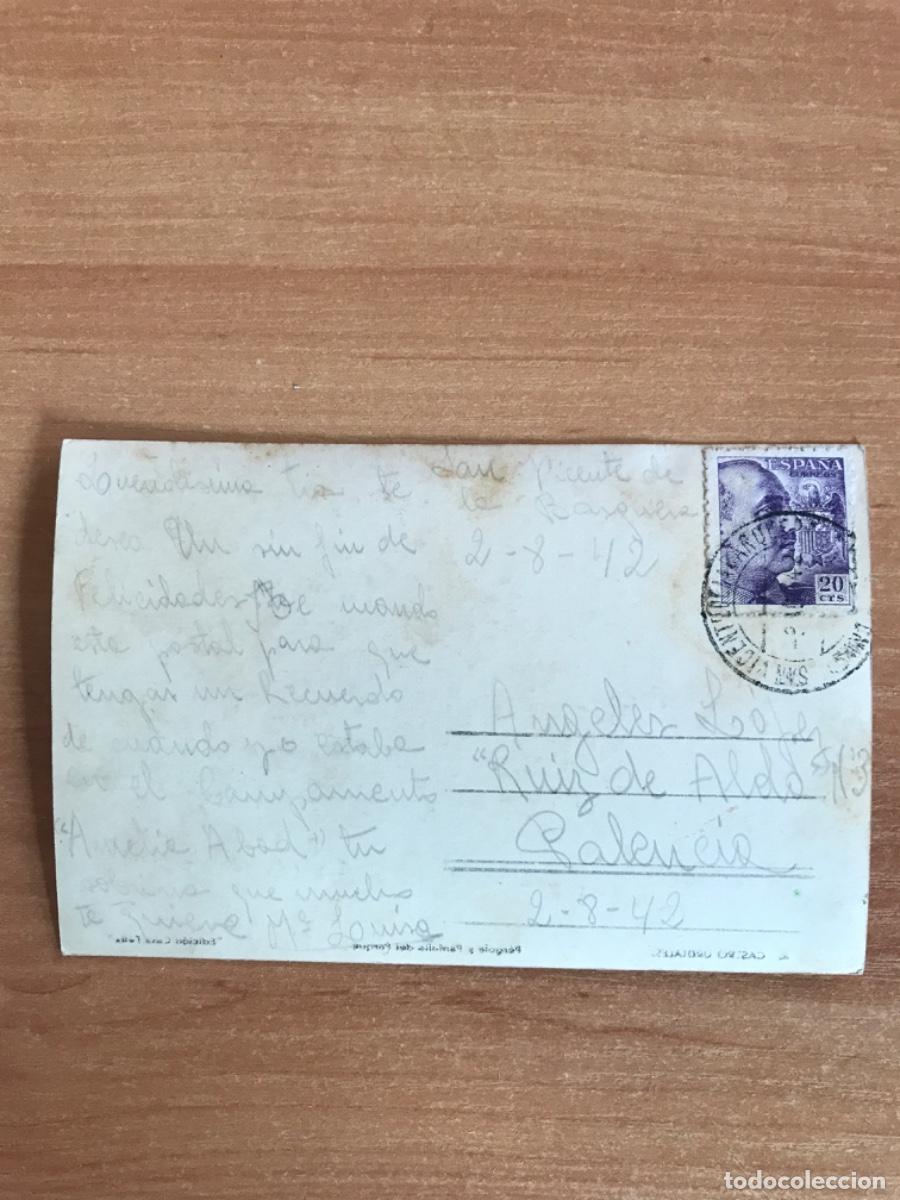 Queridísima tia te
desea Un sin fin de
Felicidades, te mando
esta postal para que
tengas un Recuerdo
de cuando yo estaba
en el Campamento
"Amelia Abad" tu
sobrina que mucho
te quiere Mª Louisa
San Vicente de
la Barquera
2-8-42
ESPAÑA
CORREOS
20
CTS
SAN VICENTE
Angeles López
"Ruiz de Alda"
Palencia
2-8-42
"Edición Casa Feliu"
Pérgola y Pantalla del Parque
CASTRO URDIALES.
todocoleccion